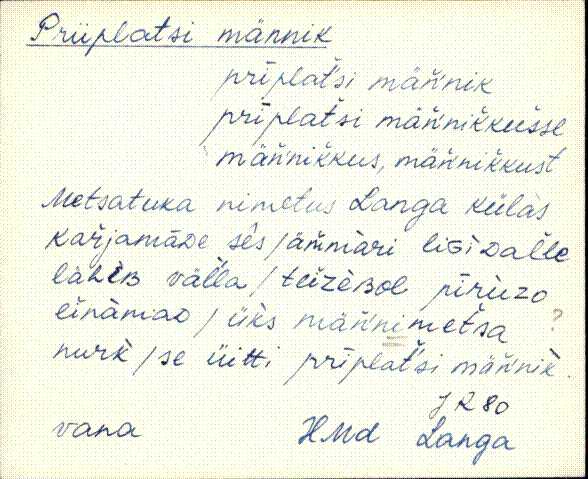 Priiplatsi männik
prīplat̆si män̆nik
prīplat̆si män̆nik̆kušse
män̆nik̆kus, män̆nik̆kust
Metsatuka nimetus Langa külas
kar̆jamàDe sēs / äm̆märi liGiDal̆le
läheB väl̆la / teizèBol pīriuzo
einàmaD / üks män̆nimet̆sa ?
nurk̆ / se üitti prīplat̆si män̆nik.
J R 80
vana HMd Langa